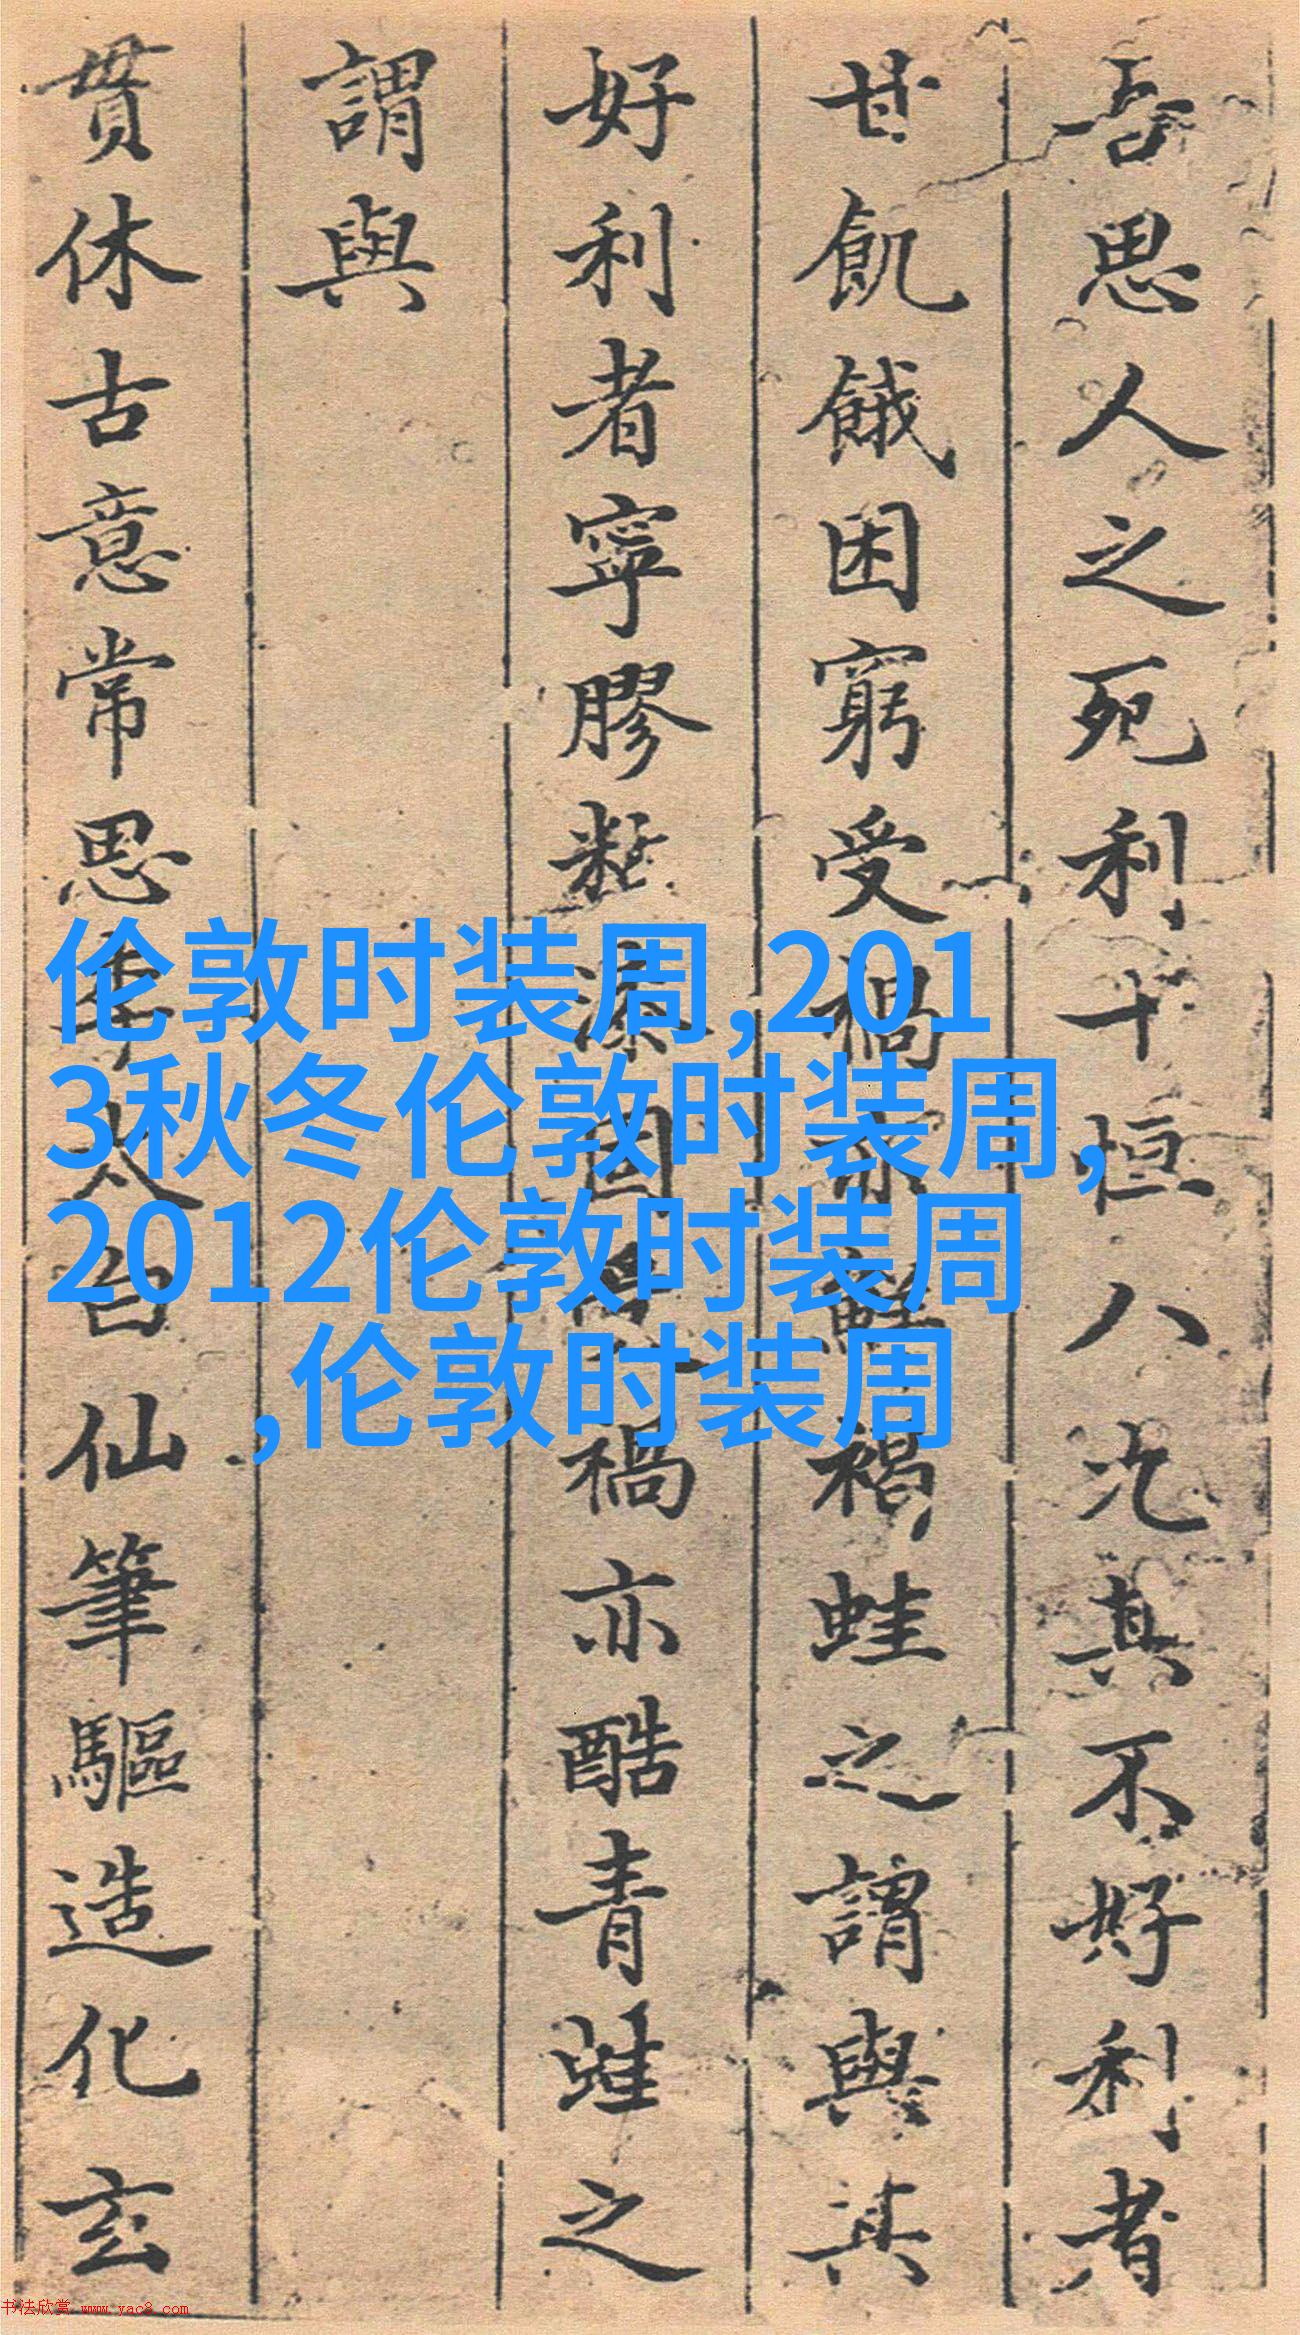 吾思人之死利十恒八九其不好利者
甘飢餓困窮受禍亦鮮禍蛙之謂與其
好利者寧膠黏漆固禍亦酷青蛙之
謂與
貫休古意常思李太白仙筆驅造化玄
伦敦时装周,201
3秋冬伦敦时装周,
2012伦敦时装周
,伦敦时装周
书法欣赏 www.yac8.com